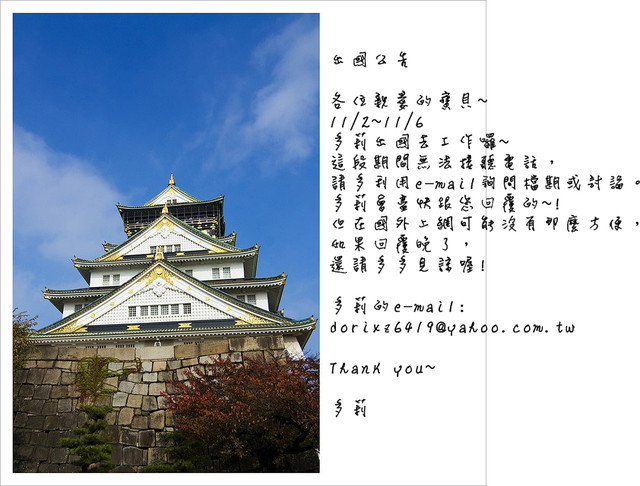 出國公告
各位親愛的寶貝~
11/2~11/6
多莉出國去工作囉~
這段期間無法接聽電話，
請多利用e-mail詢問檔期或討論。
多莉會盡快跟您回覆的~!
但在國外上網可能沒有那麼方便，
如果回覆晚了，
還請多多見諒喔!
多莉的e-mail:
dorixz6419@yahoo.com.tw
Thank you~
多莉